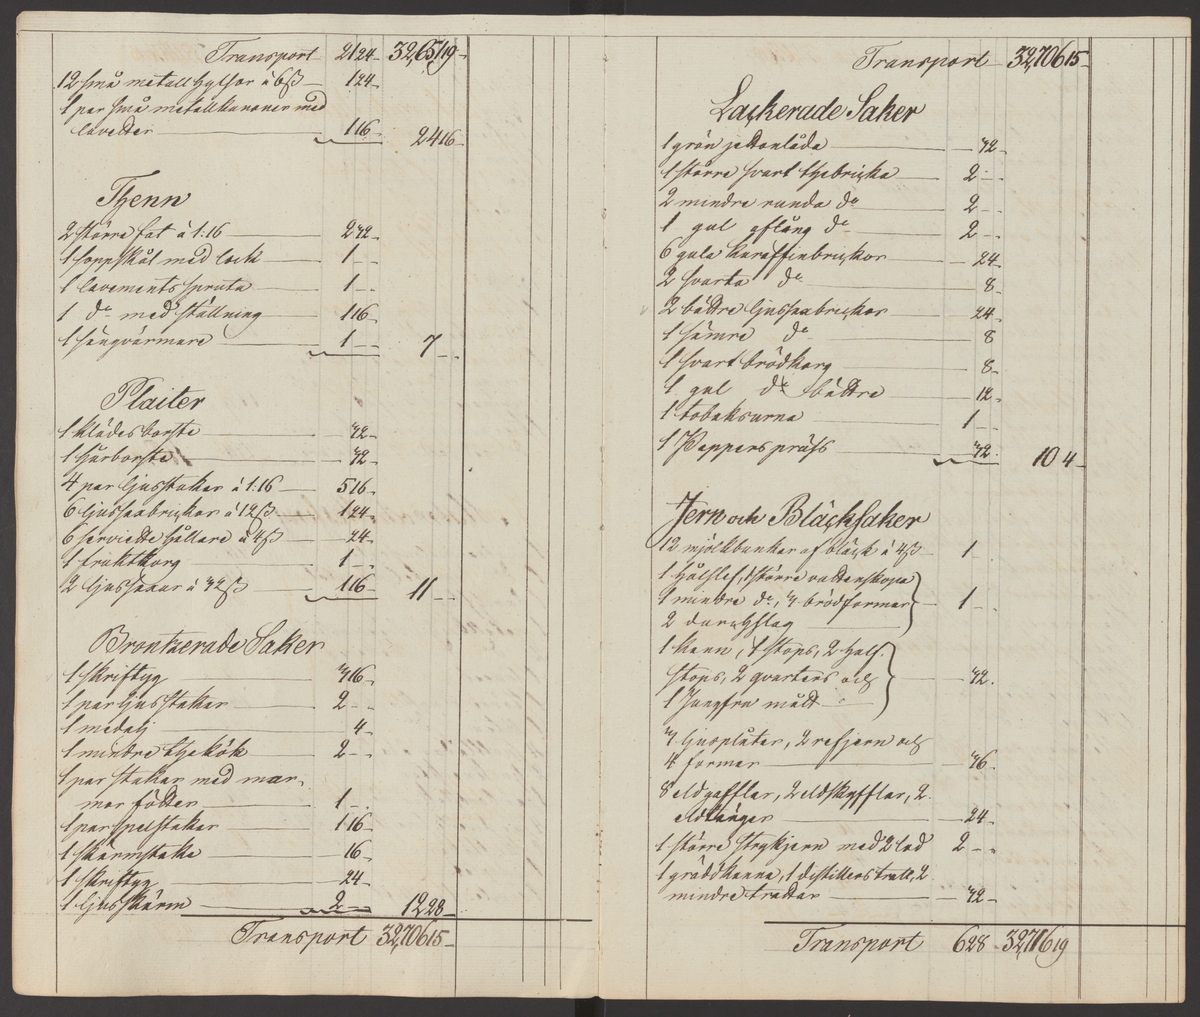 Transport 2124 32,65119
12 små metall hylsor à 6ß 124
1 par små metallkanoner med
lavetter 116 2416
Tjenn
2 större fat à 1:16 232
1 soppskål med lock 1
1 lavements spruta 1
1 do med ställning 116
1 sängvärmare 1 7
Plaiter
1 klädesborste 32
1 hårborste 32
4 par ljusstakar à 1:16 516
6 ljussaxbrickor à 12ß 124
6 serviette hållare à 4ß 24
1 fruktkorg 1
2 ljussaxar à 32ß 116 11
Brontzerade Saker
1 skriftyg 316
1 par ljusstakar 2
1 medalj 4
1 mindre thekök 2
1 par stakar med mar-
mor fötter 1
1 par spelstakar 116
1 skärmstake 16
1 skriftyg 24
1 ljusskärm 2 1228
Transport 32,70615
Transport 32,70615
Lackerade Saker
1 grön jettonlåda 32
1 större svart thebricka 2
2 mindre runda do 2
1 gul aflång do 2
6 gula karaffinbrickor 24
2 svarta do 8
2 bättre ljussaxbrickor 24
1 sämre do 8
1 svart brödkorg 8
1 gul do bättre 12
1 tobaksurna 1
1 Papperspräss 32 10 4
Jern och Bläcksaker
12 mjölkbunkar af bläck à 4ß 1
1 hålslef, 1 större vattenskopa
1 mindre do, 3 brödformar 1
2 durchslag
1 kann, 1 stops, 2 half-
stops, 2 qvarters och 32
1 Jungfru mått
3 ljusplåtar, 2 rifjern och
4 formar 36
8 eldgafflar, 2 eldskyfflar, 2
eldtänger 24
1 större strykjern med 2 lod 2
1 gräddkanna, 1 distillerstratt, 2
mindre trattar 32
Transport 628 32,71619